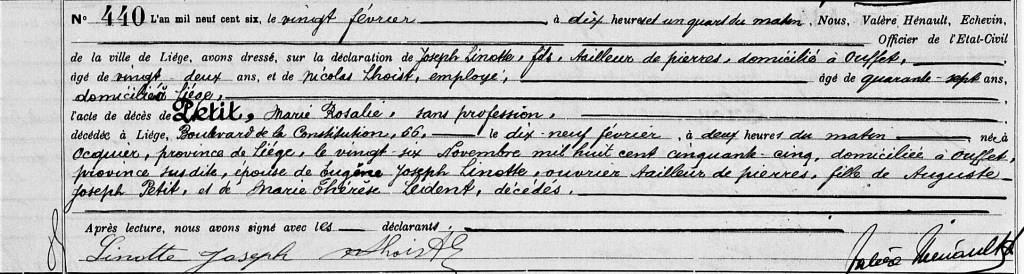 No 440 L'an mil neuf cent six, le vingt février à dix heures et un quart du matin. Nous, Valère Hénault, Echevin,
Officier de l'Etat-Civil
de la ville de Liége, avons dressé, sur la déclaration de Joseph Linotte, fils, tailleur de pierres, domicilié à Ouffet,
âgé de vingt-deux ans, et de Nicolas Lhoist, employé, âgé de quarante-sept ans,
domicilié à Liége,
l'acte de décès de Petit, Marie Rosalie, sans profession,
décédée à Liége, Boulevard de la Constitution, 66, le dix-neuf février, à deux heures du matin née à
Ocquier, province de Liége, le vingt-six Novembre mil huit cent cinquante-cinq, domiciliée à Ouffet,
province susdite, épouse de Eugène Joseph Linotte, ouvrier tailleur de pierres, fille de Auguste
Joseph Petit, et de Marie Thérèse Leident, décédés.
Après lecture, nous avons signé avec les déclarants.
Linotte Joseph NLhoist Valère Hénault